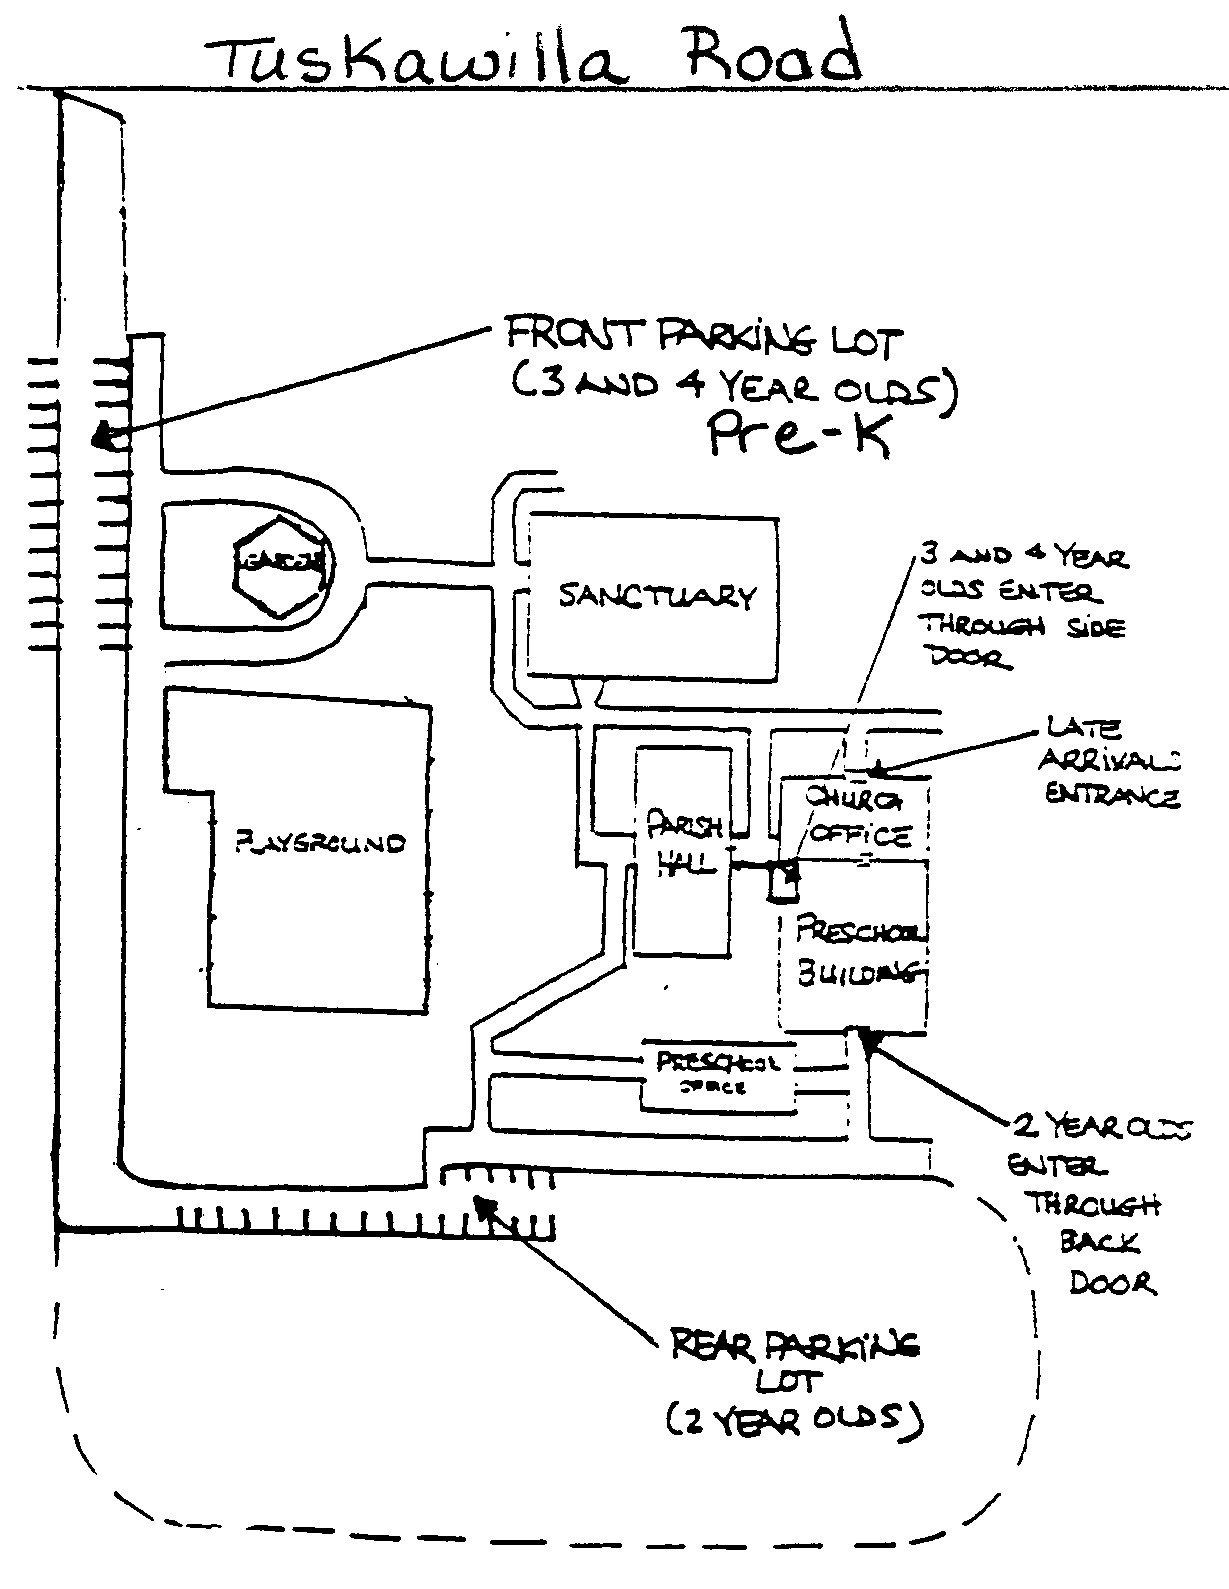 Tuskawilla Road
FRONT PARKING LOT
(3 AND 4 YEAR OLDS)
Pre-K
GARDEN
SANCTUARY
3 AND 4 YEAR
OLDS ENTER
THROUGH SIDE
DOOR
LATE
ARRIVALS
ENTRANCE
CHURCH
OFFICE
PARISH
HALL
PLAYGROUND
PRESCHOOL
BUILDING
PRESCHOOL
OFFICE
2 YEAR OLDS
ENTER
THROUGH
BACK
DOOR
REAR PARKING
LOT
(2 YEAR OLDS)